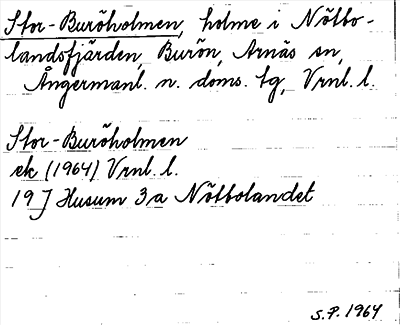 Stor-Buröholmen, holme i Nötbo-
landsfjärden, Burön, Arnäs sn,
Ångermanl. n. doms. tg, Vrnl. l.
Stor-Buröholmen
ek (1964) Vrnl. l.
19 J Husum 3a Nötbolandet
S.P. 1964